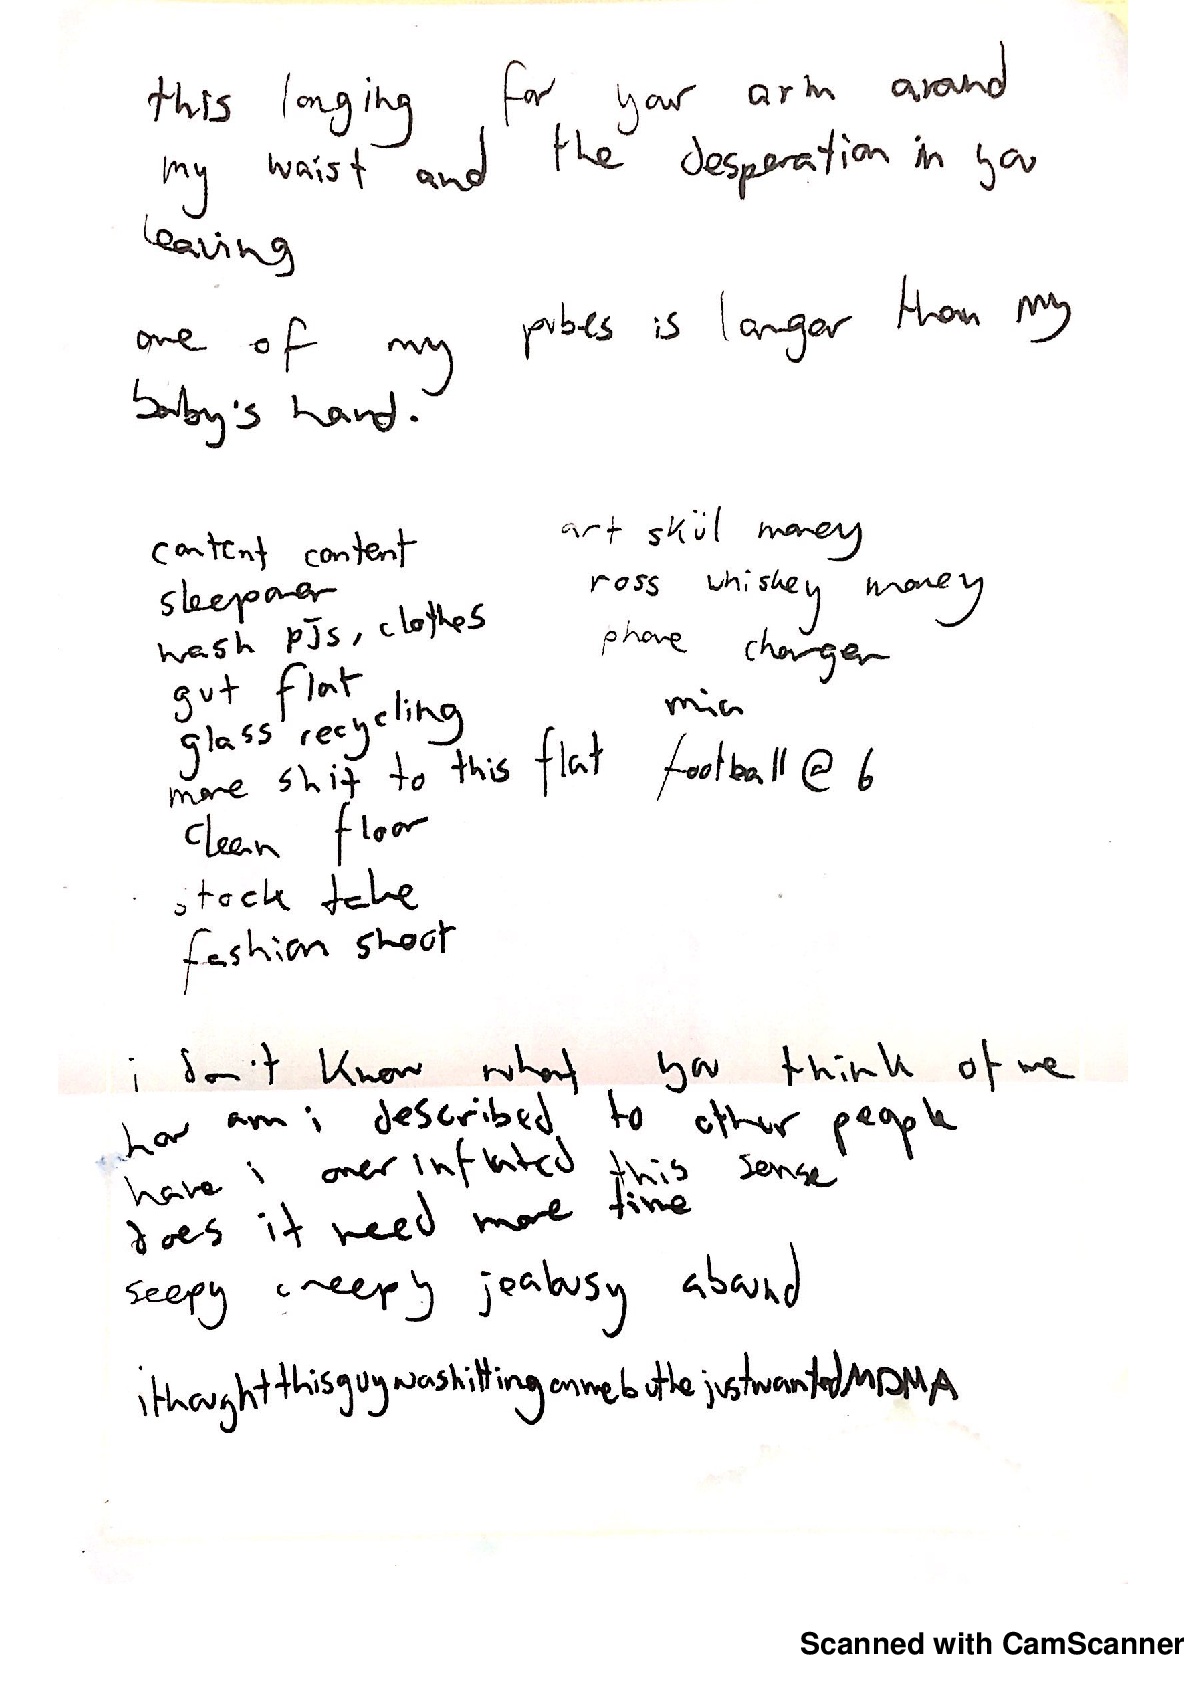 this longing for your arm around
my waist and the desperation in you
leaving
one of my pubes is longer than my
baby's hand.
content content
sleepover
wash pJs, clothes
gut flat
glass recycling
more shit to this flat
clean floor
stock take
fashion shoot
art skül money
ross whiskey money
phone charger
mia
football @ 6
i don't know what you think of me
how am i described to other people
have i over inflated this sense
does it need more time
seepy creepy jealousy abound
ithoughtthisguywashittingonmebuthejustwantedMDMA
Scanned with CamScanner